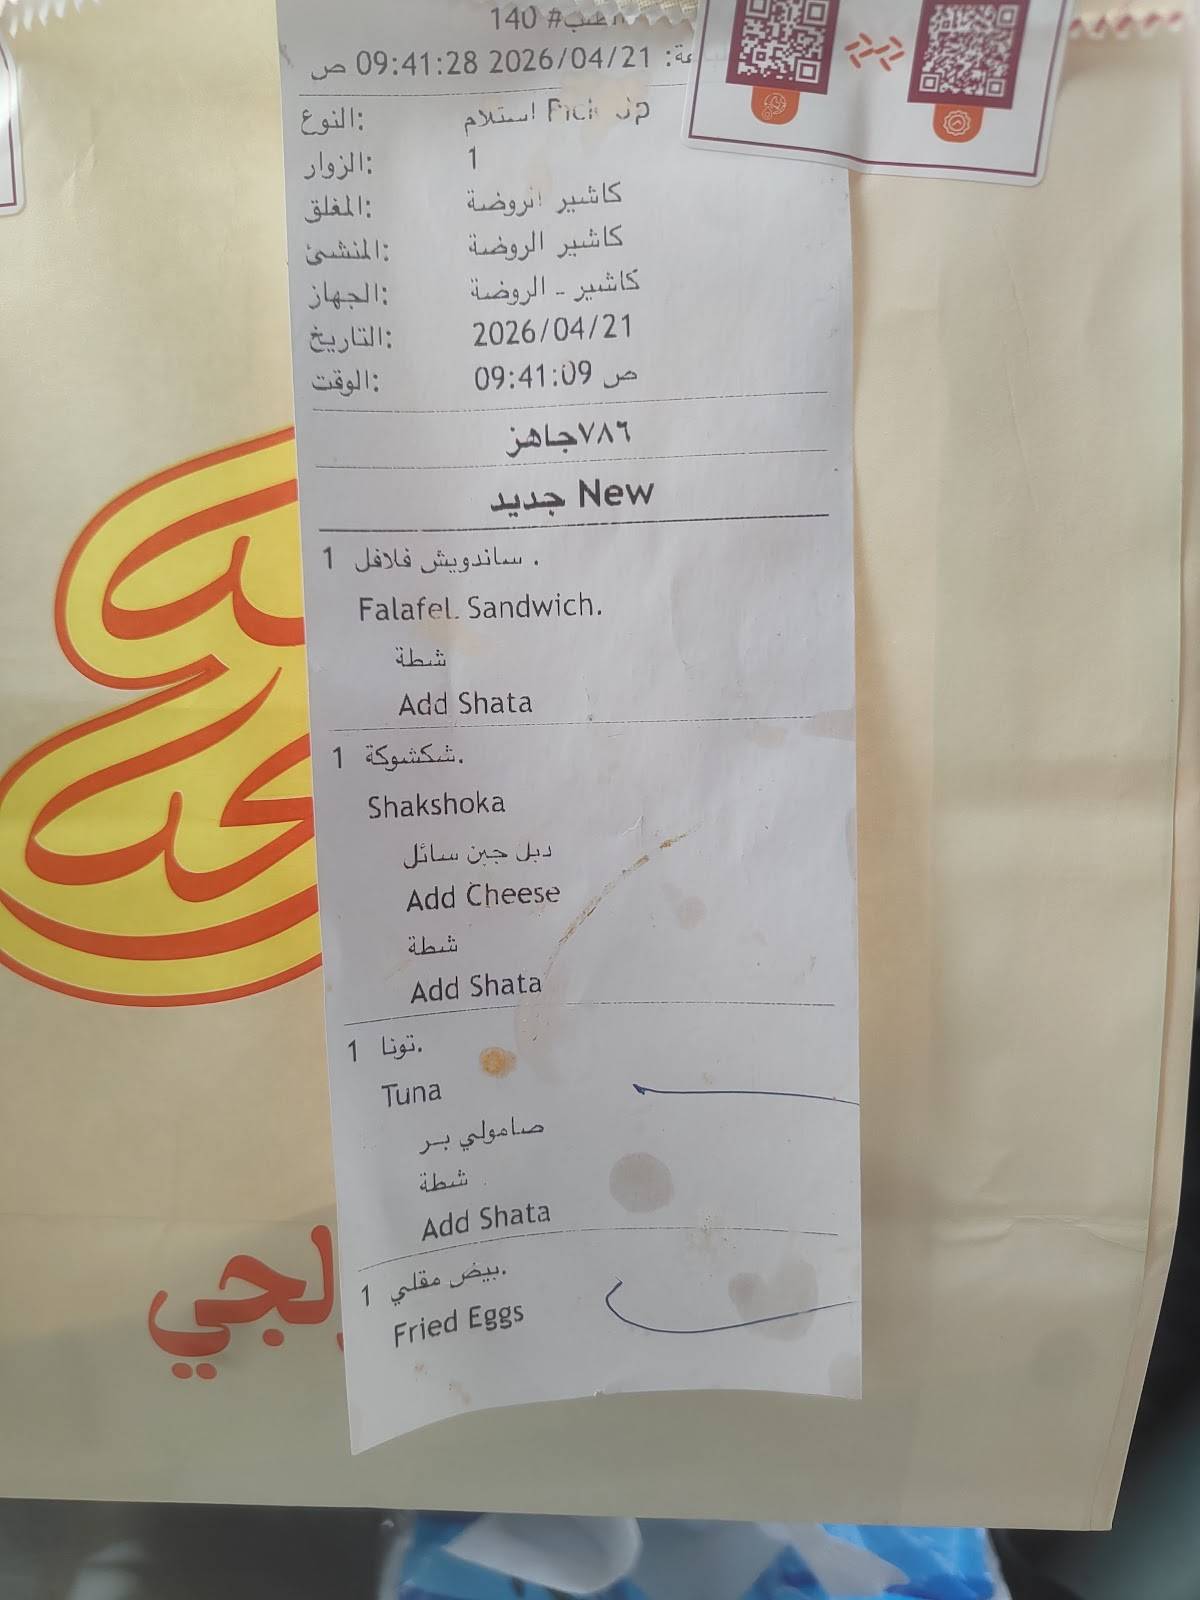 140 #
09:41:28 2026/04/21 ص
النوع: استلام Pick Up
الزوار: 1
المغلق: كاشير الروضة
المنشئ: كاشير الروضة
الجهاز: كاشير - الروضة
التاريخ: 2026/04/21
الوقت: 09:41:09 ص
٧٨٦جاهز
جديد New
1 ساندويش فلافل .
Falafel Sandwich.
شطة
Add Shata
1 شكشوكة.
Shakshoka
دبل جبن سائل
Add Cheese
شطة
Add Shata
1 تونا.
Tuna
صامولي بر
شطة
Add Shata
1 بيض مقلي.
Fried Eggs